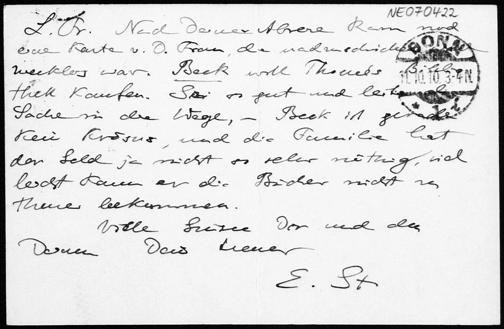 NE070422
L. Fr. Nach Deiner Abreise kam noch
eine Karte v. D. Frau, die nachzuschicken
zwecklos war. Beck will Thomés Biblio-
thek kaufen. Sei so gut und leite die
Sache in die Wege, – Beck ist ja
kein Krösus, und die Familie hat
das Geld ja nicht so sehr nötig,
leicht kann er die Bücher nicht zu
teuer bekommen.
Viele Grüsse Dir und den
Deinen Dein treuer
E. St
BONN
11.10.10.3-4N.